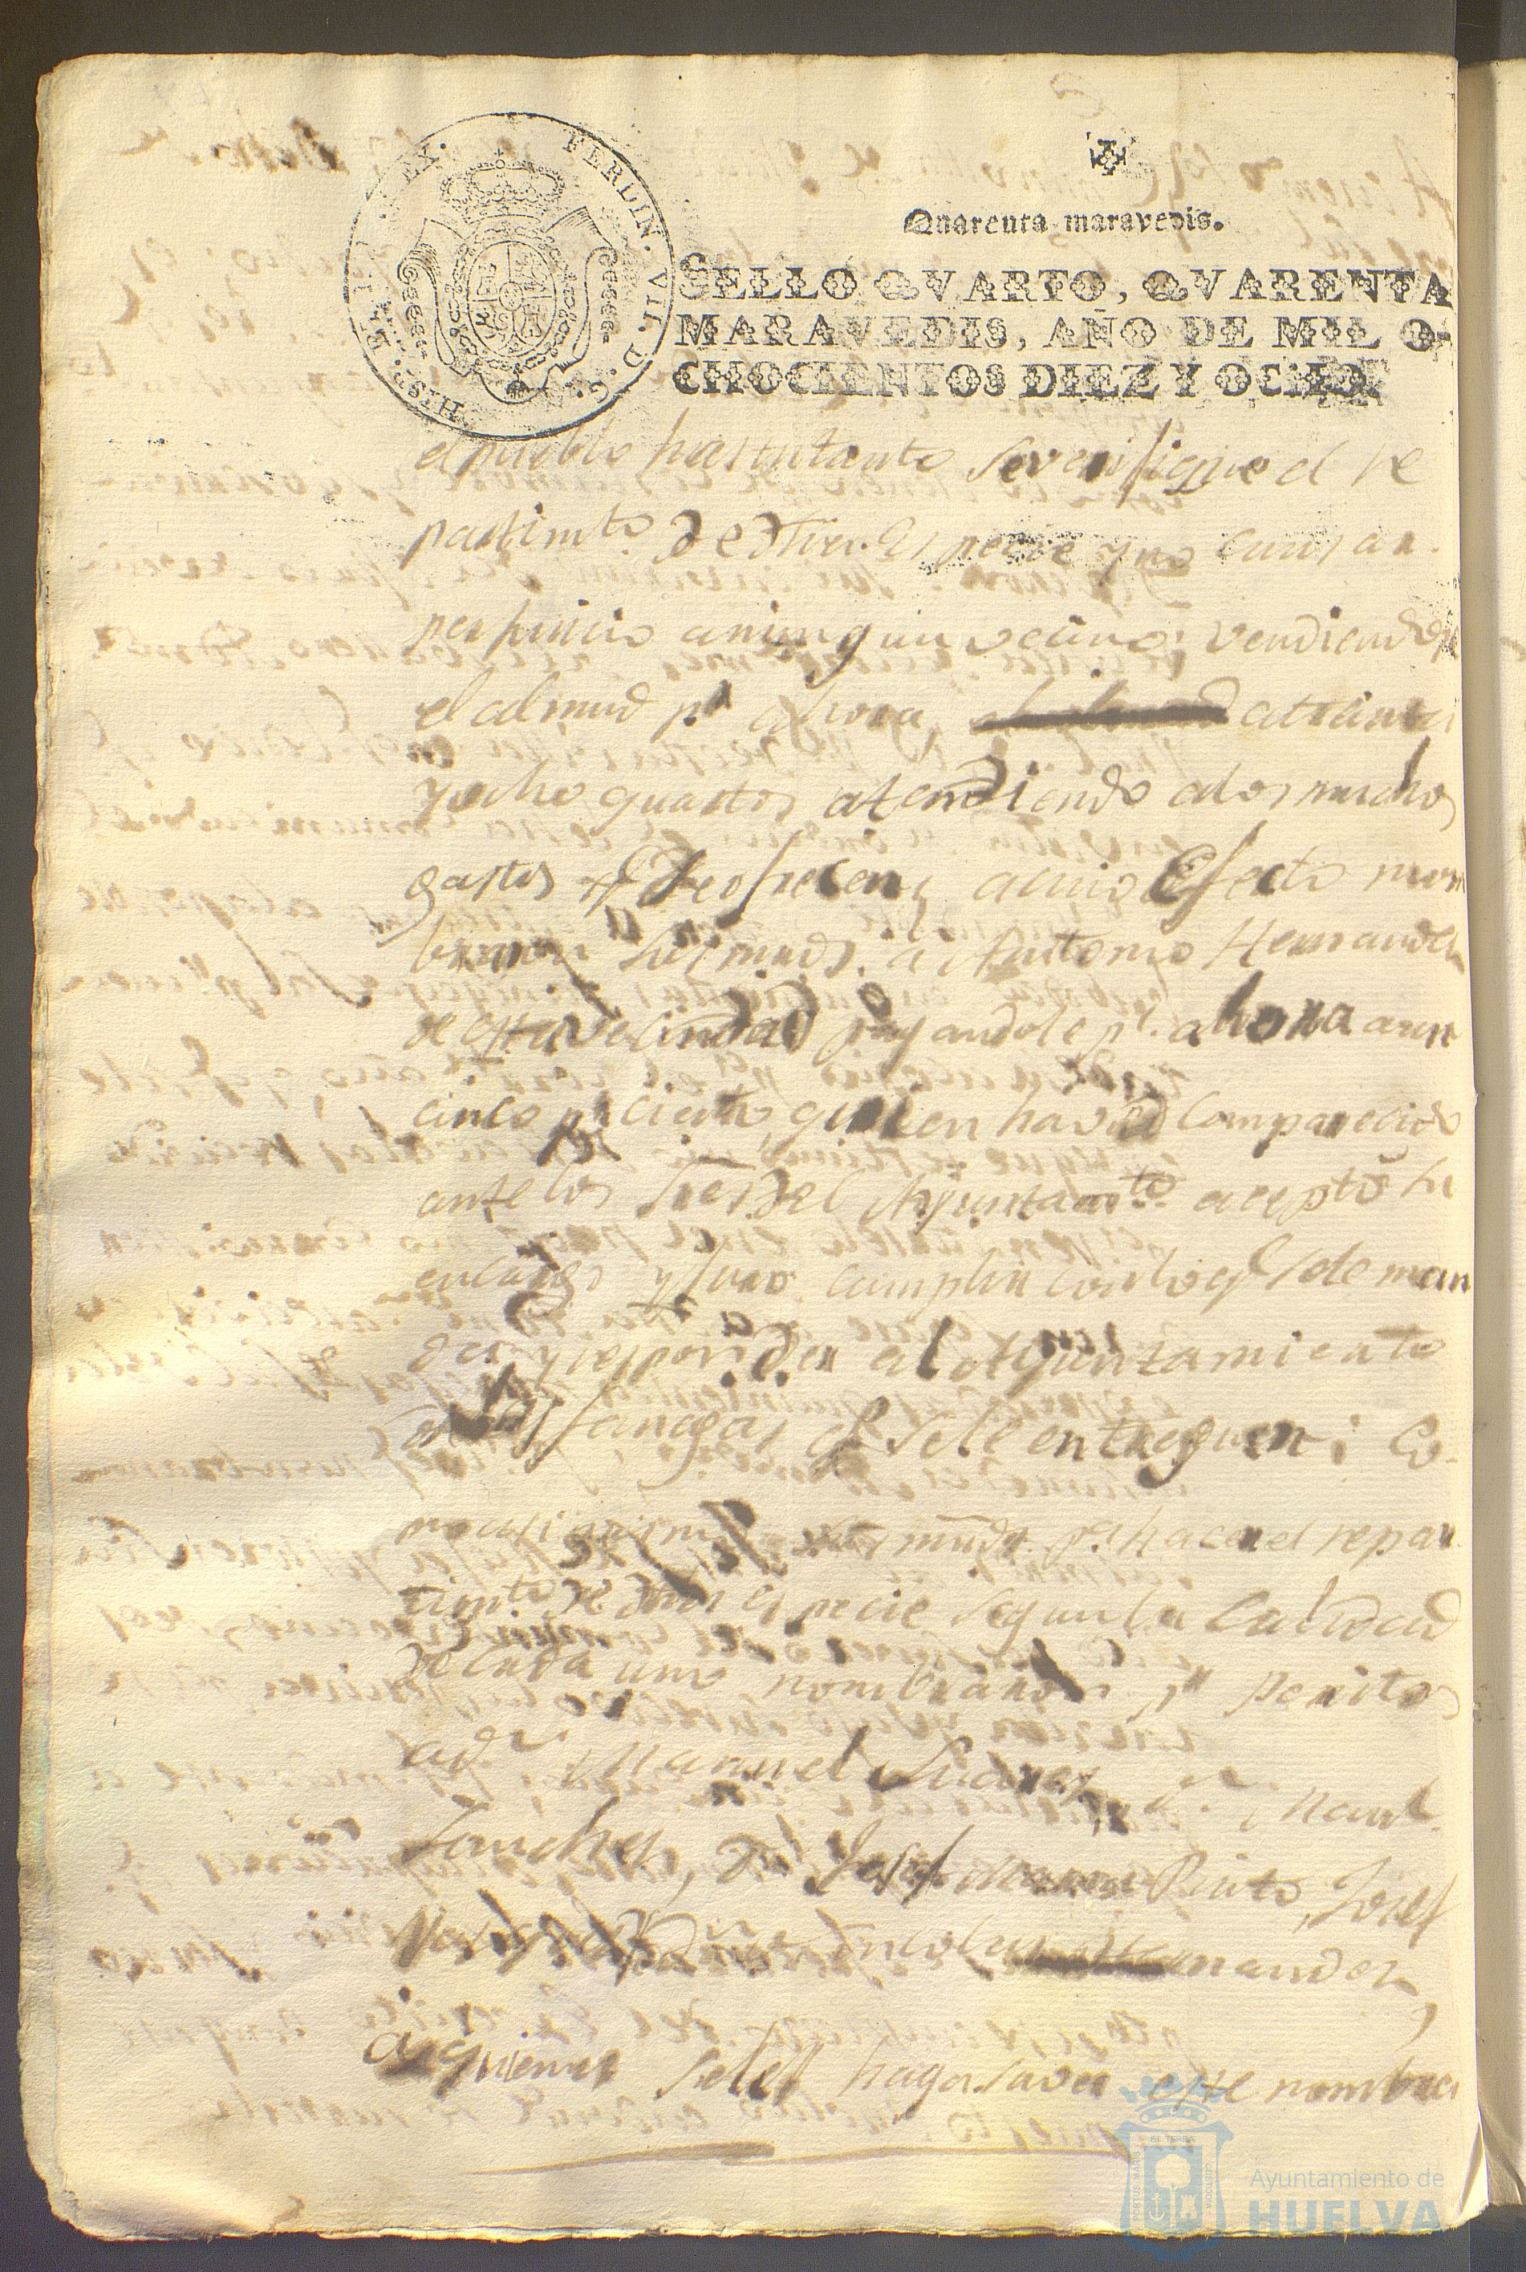 HISP. ET IND. REX. FERDIN. VII. D. G.
Quarenta maravedis.
SELLO QVARTO, QVARENTA
MARAVEDIS, AÑO DE MIL O-
CHOCIENTOS DIEZ Y OCHO.
el pueblo hasta tanto se verifique el re
partimto de dha. especie y no causar
perjuicio a ningun vecino: vendiendose
el almud pr ahora a treinta
y ocho quartos atendiendo a los muchos
gastos q. se ofrecen, a cuio Efecto nom
braron sus mrds. a Antonio Hernandez
de esta vecindad pagandole pr. ahora a un
cinco pr ciento, quien haviendo comparecido
ante los Sres del Ayuntamto. acepto su
encargo y juro cumplir con lo q. se le man
da y responder al Ayuntamiento
de las fanegas q. se le entreguen; Co
mo asi mismo sus mrds. pa hacer el repar
timto de dha especie segun la calidad
de cada uno nombraron pr peritos
a dn Manuel Suarez, dn Manl.
Sanchez, dn Josef Maria Pinto, Josef
Nicolas Hernandez,
a quienes se les haga saver este nombra
Ayuntamiento de
HUELVA